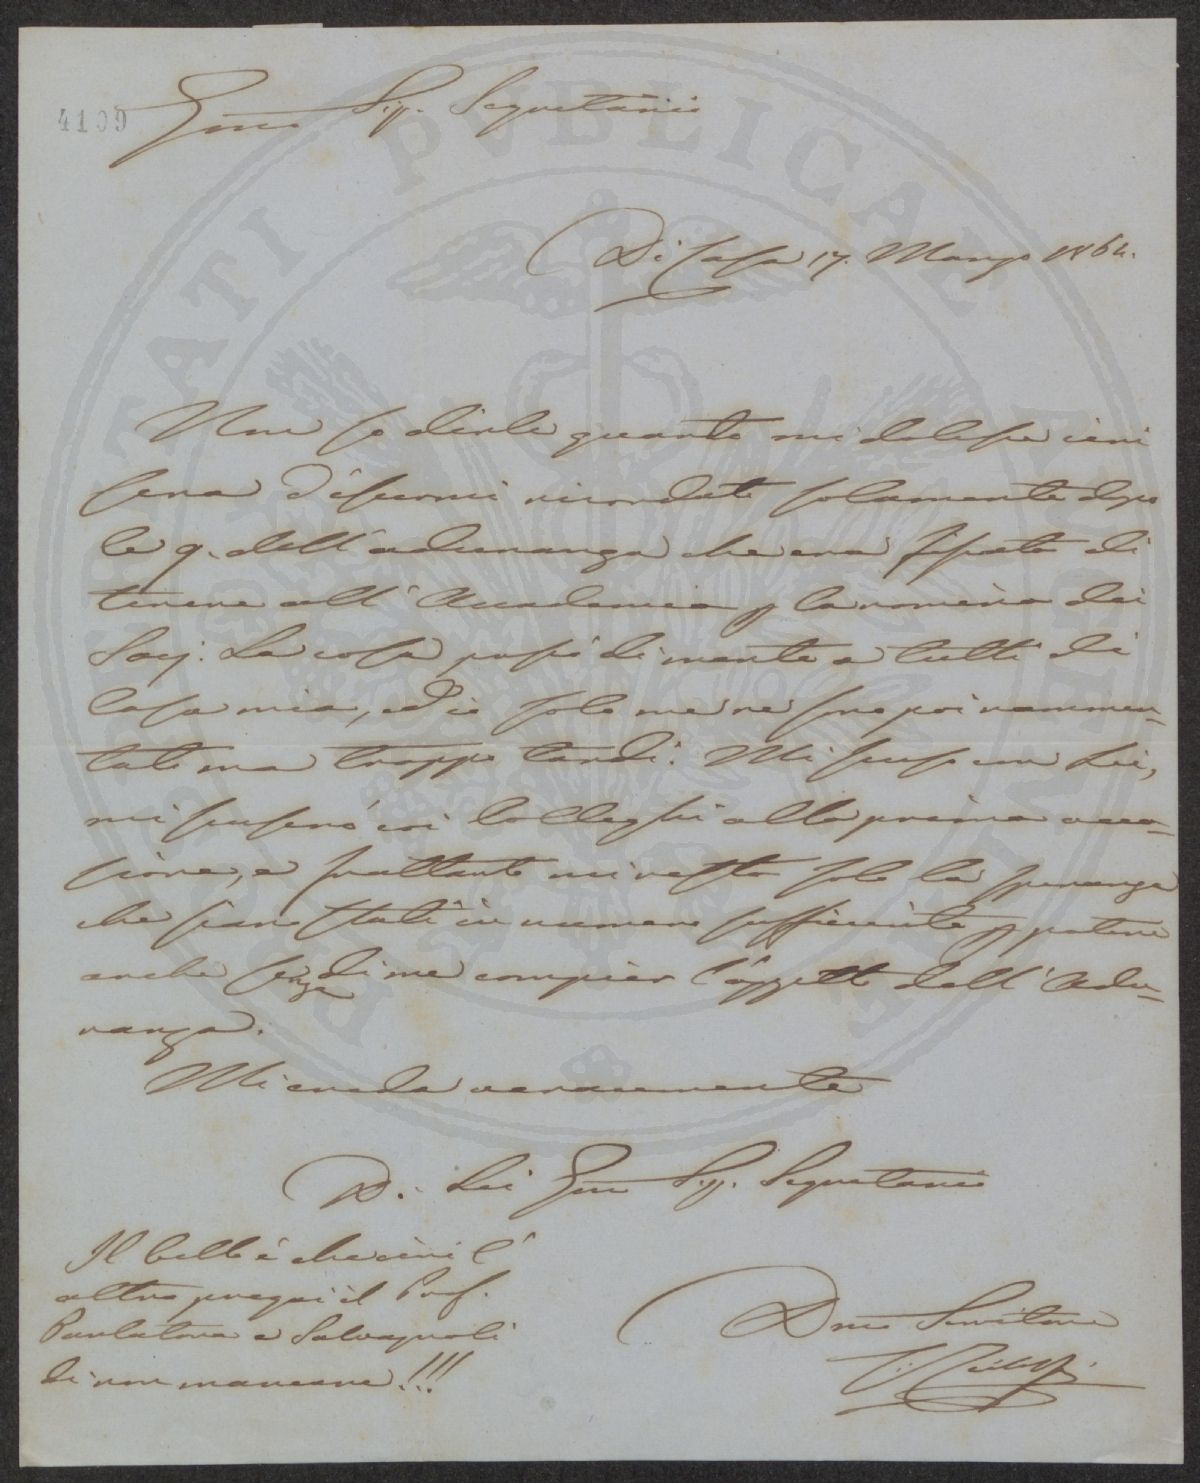 4109
Ecc.mo Sig. Segretario
Di Casa 17. Marzo 1864.
Non so dirle quanto mi dolesse ieri
sera d'essermi ricordato solamente dopo
le 9. dell'adunanza che era fissato di
tenere all'Accademia p la nomina dei
Socj. La cosa passò di mente a tutti di
Casa mia, ed io solo me ne sono poi rammen-
tato ma troppo tardi. Mi scuso con Lei,
mi scuserò coi Colleghi alla prima occa-
sione, e frattanto mi resta solo la speranza
che siano stati in numero sufficiente p potere
anche senza di me compier l'oggetto dell'Adu-
nanza.
Mi creda veracemente
Di Lei Ecc.mo Sig. Segretario
Il bello è che ieri l'
altro pregai il Prof.
Punlatora e Salvagnoli
di non mancare!!!
Dmo Servitore
PVBLICAE